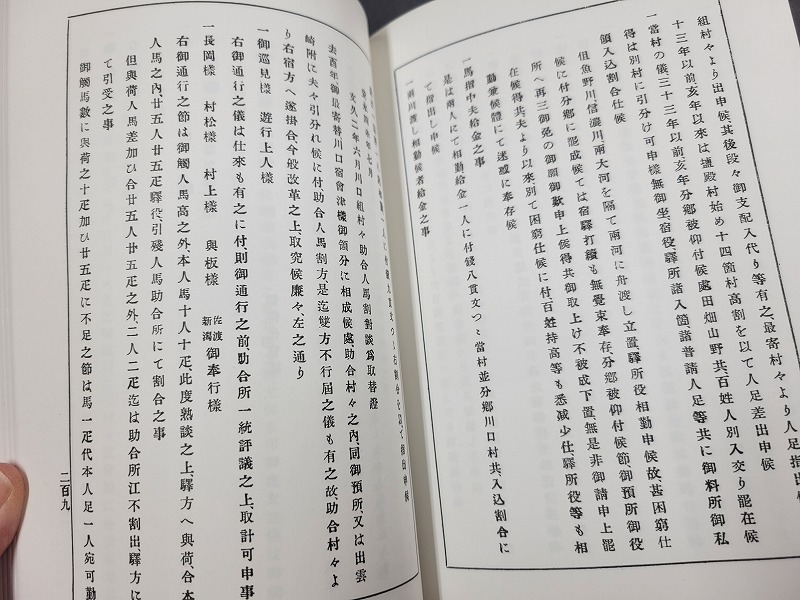 組村々より出申候其後段々御支配入代り等有之、最寄村々より人足指出
十三年以前亥年以來は堀殿村始め十四箇村高割を以て人足差出申候
一當村の儀三十三年以前亥年分鄕被仰付候處田畑山野共、百姓人別入交り罷在候
得は別村に引分け可申樣無御坐、宿役、驛所諸入箇、諸普請人足等共に御料所御私
領入込割合仕候
但魚野川信濃川兩大河を隔て兩河に舟渡し立置驛所役相勤申候故、甚困窮仕
候に付分鄕に罷成候ては宿驛打續も無覺束奉存、分鄕被仰付候節御預所御役
所へ再三御免の御願御歎申上候得共御取上け不被成下置無是非御請申上罷
在候得共夫より以來別て困窮仕候に付、百姓持高等も悉減少仕、驛所役等も相
勤兼候體にて迷惑に奉存候
一馬指中夫給金之事
是は兩人にて相勤給金一人に付錢八貫文つゝ當村並分鄕川口村共、入込割合に
て指出し申候
一兩川渡し相勤候者給金之事
文久二年六月川口組村々助合人馬割對談爲取替證
去酉年御最寄替川口宿會津樣御領分に相成候處助合村々之內、同御預所、又は出雲
崎附に夫々引分れ候に付助合人馬割方是迄雙方不行屆之儀も有之故、助合村々よ
り右宿方へ遂掛合今般改革之上、取究候廉々左之通り
一御巡見樣 遊行上人樣
右御通行之儀は仕來も有之に付、則御通行之前、助合所一統評議之上、取計可申事
一長岡樣 村松樣 村上樣 與板樣 佐渡新潟御奉行樣
右御通行之節は御觸人馬高之外、本人馬十人十疋、此度熟談之上、驛方へ與荷、合本
人馬之內廿五人廿五疋驛役、引殘人馬助合所にて割合之事
但與荷人馬差加ひ合廿五人廿五疋之外、二人二疋迄は助合所江不割出驛方に
て引受之事
御觸馬數に與荷之十疋加ひ廿五疋に不足之節は馬一疋代本人足一人宛可勤
二百九